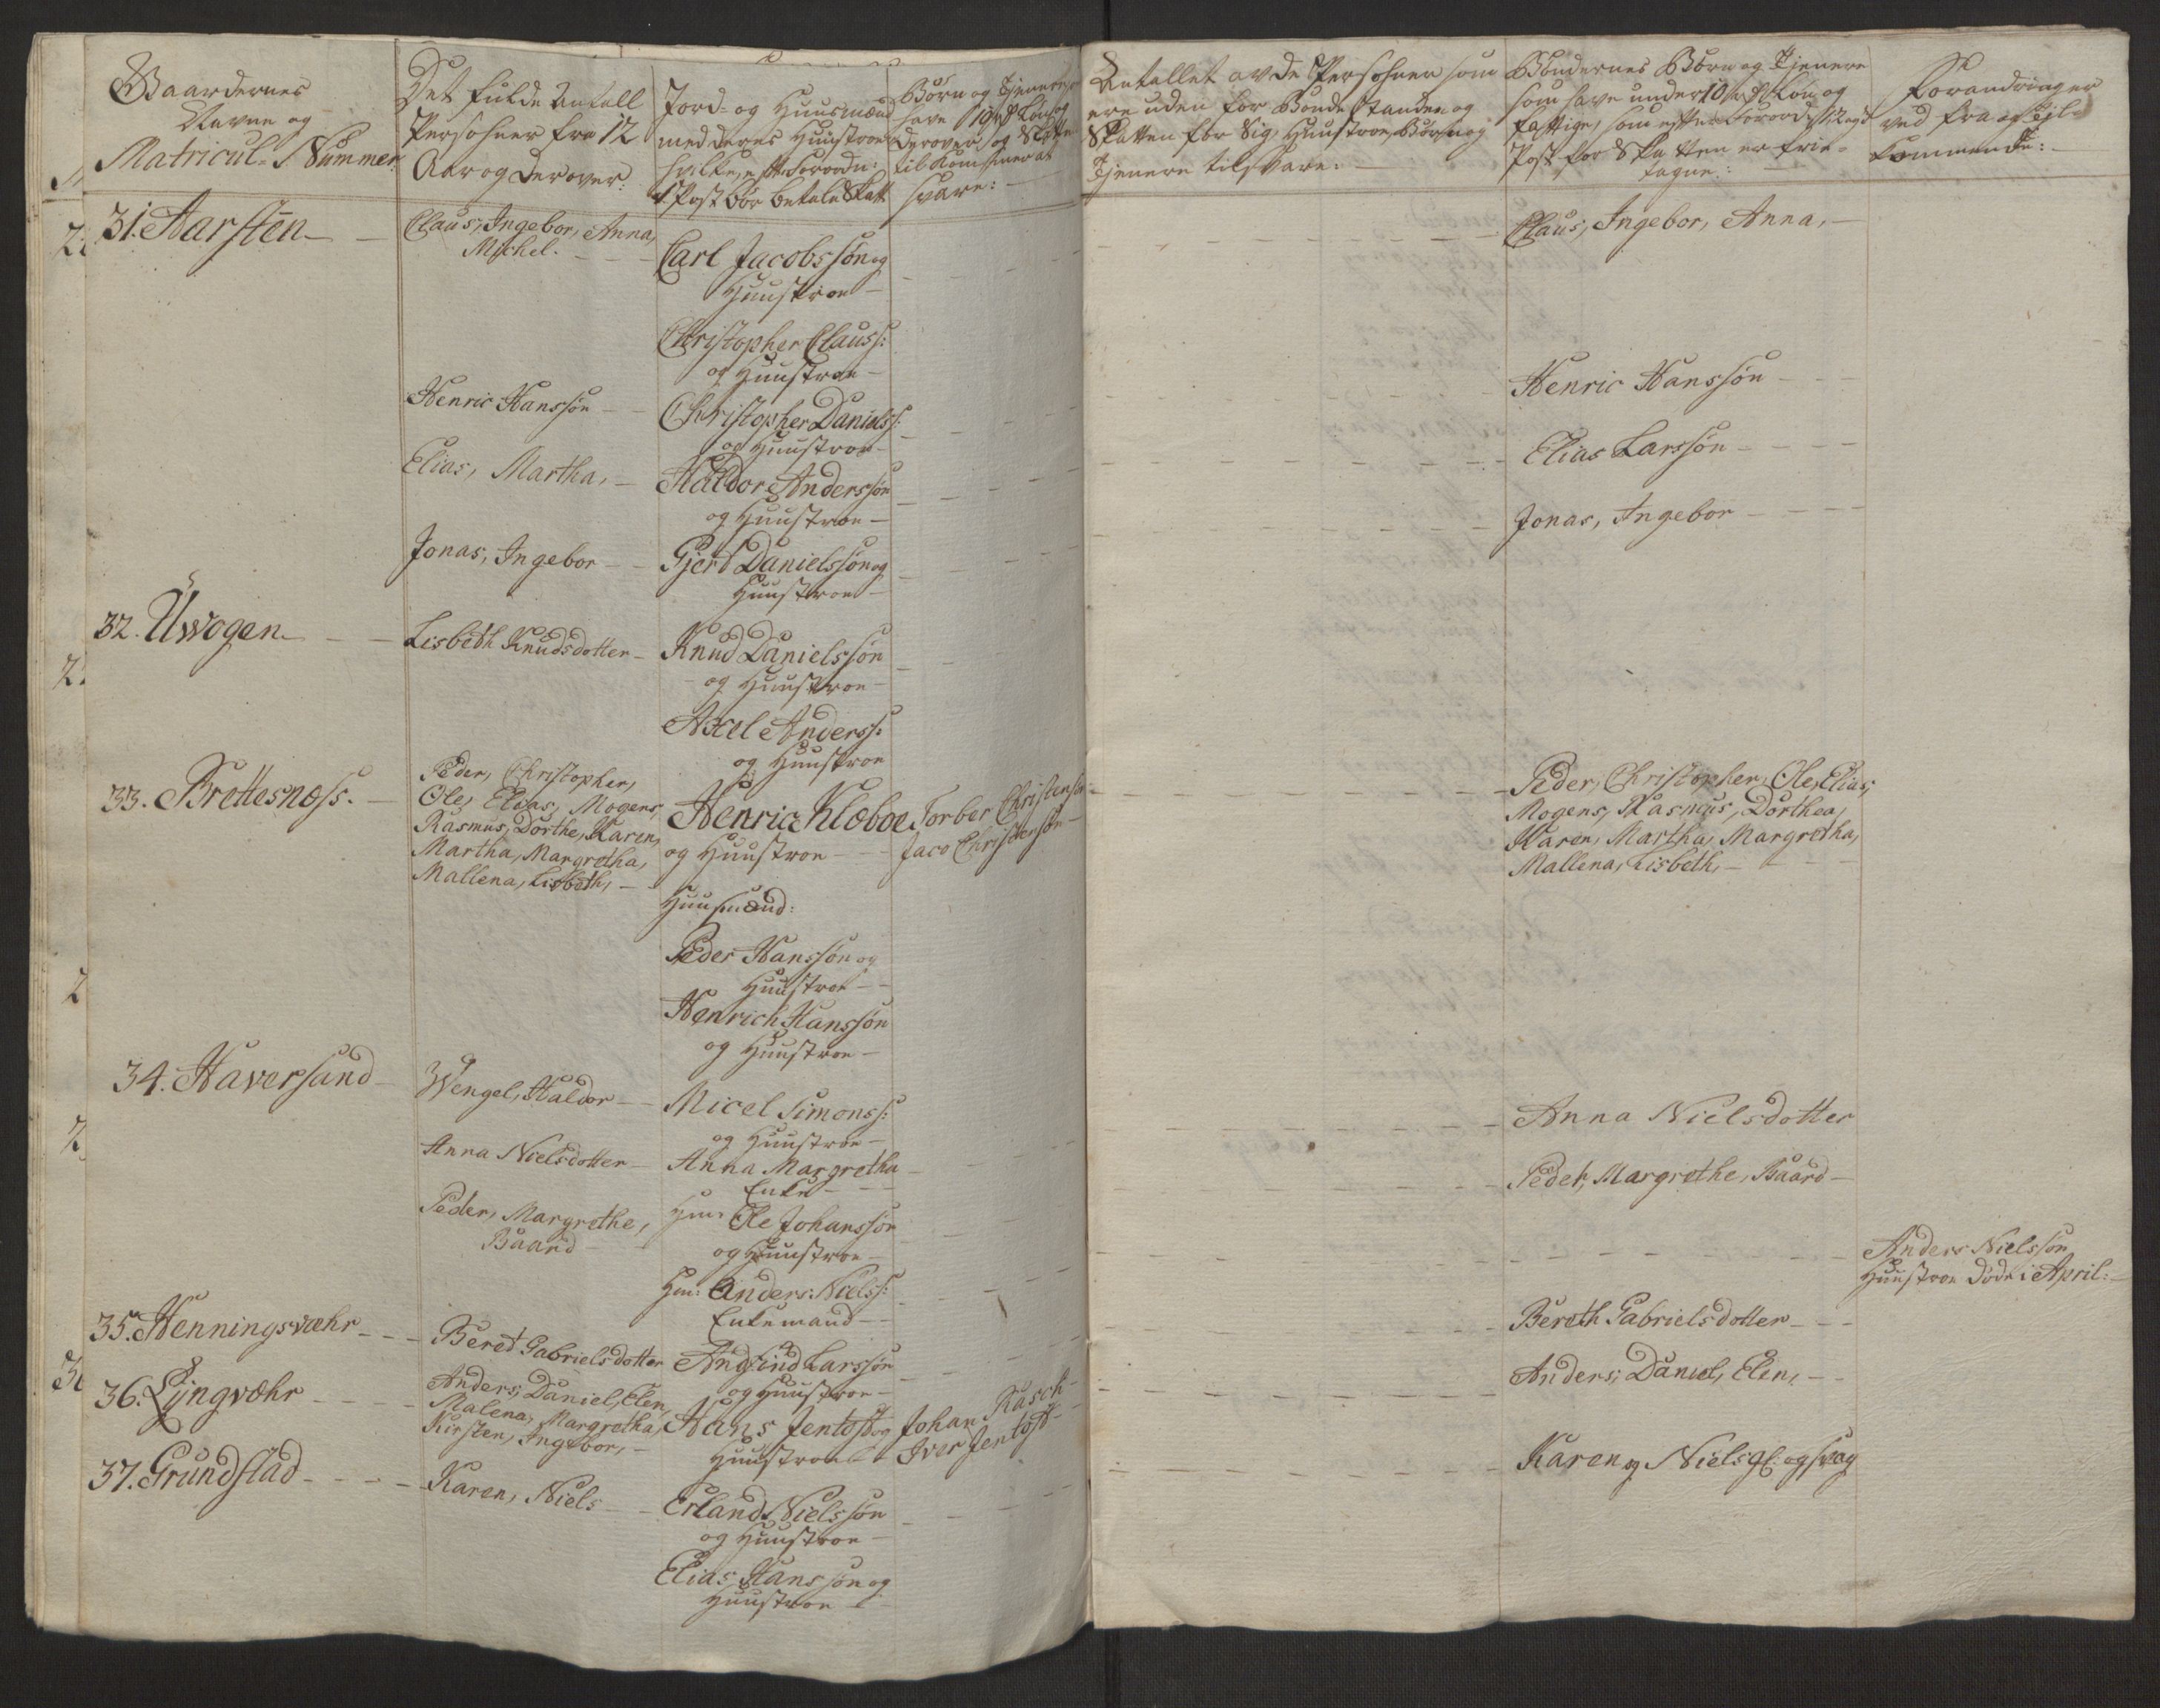 Gaardernes
Navne og
Matricul. Nummer.
Det fulde Antall
Persohner fra 12
Aar og derover:
Jord- og Huusmænd
med deres Huustroer
hvilke, efter Forordn:
1 Post bør betale Skatt
Børn og Tjenere,
have 10 rdr Løn og
derover, og Skatte
til Kom̃er at
svare:
Antallet av de Persohner som
ere uden for Bonde Standen og
Skatten for Sig, Huustroe, Børn og
Tjenere tilsvare:
Bøndernes Børn og Tjenere
som have under 10 rdr Løn, og
fattige, som efter Forordn:
Post for Skatten er frie-
tagne:
Forandringer
ved fra og Til-
kommende:
31. Aarsteen
Claus, Ingebor, Anna,
Michel.
Carl Jacobssøn og
Huustroe
Claus, Ingebor, Anna,
Christopher Clauss:
og Huustroe
Henric Hanssøn
Christopher Daniels:
og Huustroe
Henric Hanssøn
Elias, Martha,
Haldor Anderssøn
og Huustroe
Elias Larssøn
Jonas, Ingebor
Gjerd Danielssøn og
Huustroe
Jonas, Ingebor
32. Uwogen
Lisbeth Knudsdotter
Knud Danielssøn
og Huustroe
Axel Anderss:
og Huustroe
33. Brettesnæss.
Peder, Christopher,
Ole, Elias, Mogens,
Rasmus, Dorthe, Karen,
Martha, Margretha,
Mallena, Lisbeth,
Henric Klæboe
og Huustroe
Torber Christenssøn
Jaco Christenssøn
Peder, Christopher, Ole, Elias,
Mogens, Rasmus, Dorthea,
Karen, Martha, Margretha,
Mallena, Lisbeth,
Huusmænd:
Peder Hanssøn og
Huustroe
Henrich Hanssøn
og Huustroe
34. Haversand
Wengel, Haldor
Micel Simonss:
og Huustroe
Anna Nielsdotter
Anna Nielsdotter
Anna Margretha
Enke
Peder, Margrethe, Baard
Peder, Margrethe,
Baard
Huus: Ole Johanssøn
og Huustroe
Hm: Anders Nielss:
Enkemand
Anders Nielssøn
Huustroe døde i April:
35. Henningsvæhr
Beret Gabrielsdotter
Andfind Larssøn
og Huustroe
Bereth Gabrielsdotter
36. Lyngvæhr
Anders, Daniel, Elen,
Malena, Margretha,
Kirsten, Ingebor,
Hans Jentoft og
Huustroe
Johan Rasch
Iver Jentoft
Anders, Daniel, Elen,
37. Grundstad
Karen, Niels
Erland Nielssøn
og Huustroe
Karen og Niels gl. og svag
Elias Hanssøn og
Huustroe